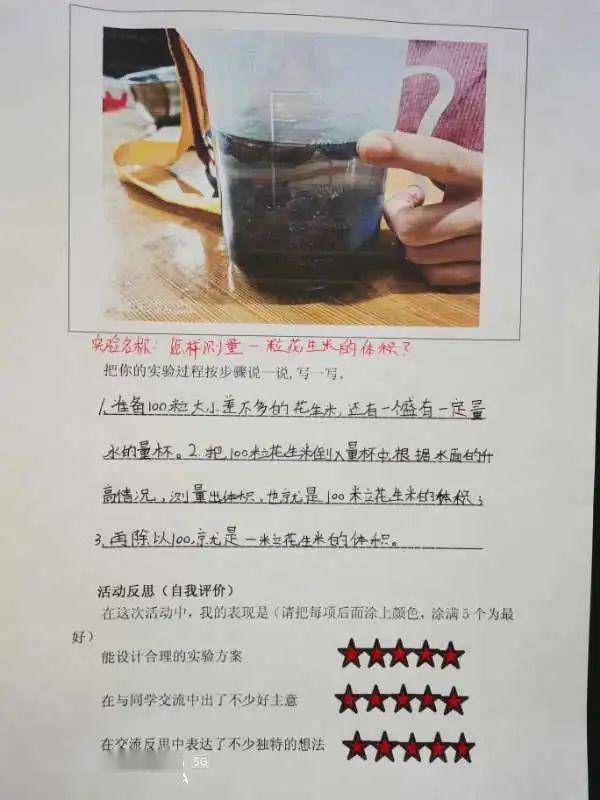 实验名称：怎样测量一粒花生米的体积？
把你的实验过程按步骤说一说，写一写。
1、准备100粒大小差不多的花生米，还有一个盛有一定量
水的量杯。2、把100粒花生米倒入量杯中，根据水面的升
高情况，测量出体积，也就是100粒花生米的体积；
3、再除以100，就是一粒花生米的体积。
活动反思（自我评价）
在这次活动中，我的表现是（请把每项后面涂上颜色，涂满5个为最
好）
能设计合理的实验方案
在与同学交流中出了不少好主意
在交流反思中表达了不少独特的想法
5G